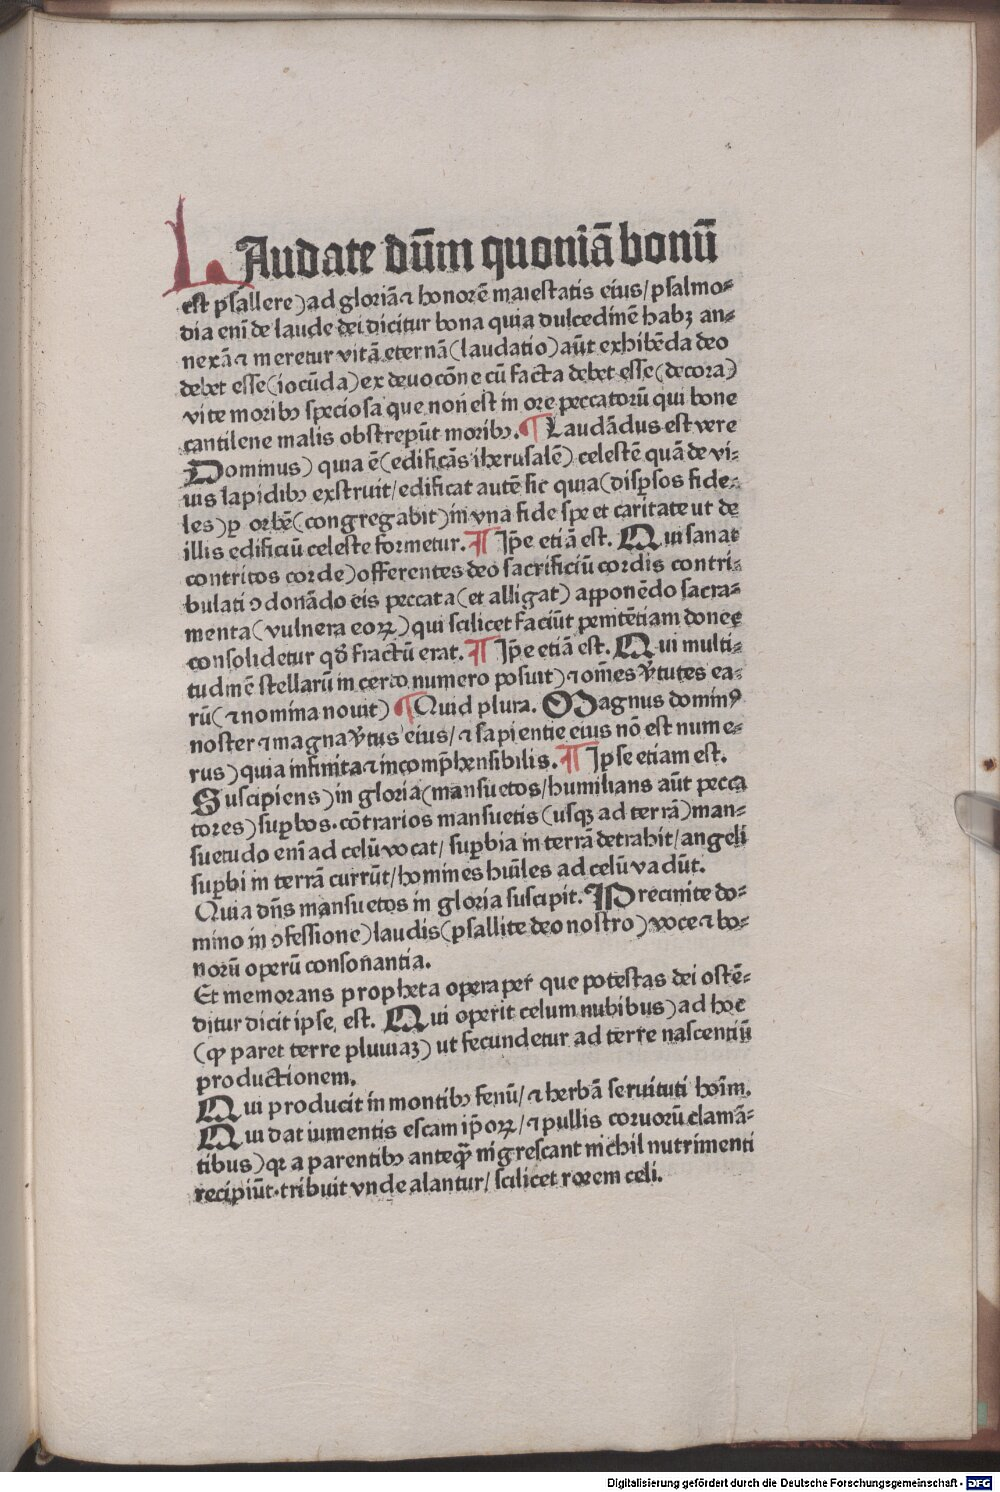 LAudate dūm quoniā bonū
est psallere) ad gloriā ⁊ honorē maiestatis eius/ psalmo⸗
dia enī de laude dei dicitur bona quia dulcedinē habꝫ an⸗
nexā ⁊ meretur vitā eternā (laudatio) aūt exhibēda deo
debet esse (iocūda) ex deuocōne cū facta debet esse (decora)
vite moribꝰ speciosa que non est in ore peccatorū qui bone
cantilene malis obstrepūt moribꝰ. ¶ Laudādus est vere
Dominus) quia ē (edificās iherusalē) celestē quā de vi⸗
uis lapidibꝰ exstruit/ edificat autē sic quia (disꝑsos fide⸗
les) ꝑ orbē (congregabit) in vna fide spe et caritate ut de
illis edificiū celeste formetur. ¶ Ip̄e etiā est. Qui sanat
contritos corde) offerentes deo sacrificiū cordis contri⸗
bulati ↄdonādo eis peccata (et alligat) apponēdo sacra⸗
menta (vulnera eoꝝ) qui scilicet faciūt penitētiam donec
consolidetur qd̄ fractū erat. ¶ Ip̄e etiā est. Qui multi⸗
tudinē stellarū in certo numero posuit) ⁊ om̄es v̄tutes ea⸗
rū (⁊ nomina nouit) ¶ Quid plura. Magnus dominꝰ
noster ⁊ magna v̄tus eius/ ⁊ sapientie eius nō est nume⸗
rus) quia infinita ⁊ incomp̄hensibilis. ¶ Ipse etiam est.
Suscipiens) in gloria (mansuetos/ humilians aūt pecca
tores) suꝑbos. cōtrarios mansuetis (usqꝫ ad terrā) man⸗
suetudo enī ad celū vocat/ suꝑbia in terrā detrahit/ angeli
suꝑbi in terrā currūt/ homines huīles ad celū vadūt.
Quia dn̄s mansuetos in gloria suscipit. Precinite do⸗
mino in ↄfessione) laudis (psallite deo nostro) voce ⁊ bo⸗
norū operū consonantia.
Et memorans propheta opera per que potestas dei ostē⸗
ditur dicit ipse, est. Qui operit celum nubibus) ad hoc
(ꝙ paret terre pluuiaꝫ) ut fecundetur ad terre nascentiū
productionem.
Qui producit in montibꝰ fenū/ ⁊ herbā seruituti hoīm.
Qui dat iumentis escam ip̄oꝝ/ ⁊ pullis coruorū clamā⸗
tibus) qꝛ a parentibꝰ anteqꝫ̄ nigrescant nichil nutrimenti
recipiūt. tribuit vnde alantur/ scilicet rorem celi.
Digitalisierung gefördert durch die Deutsche Forschungsgemeinschaft - DFG